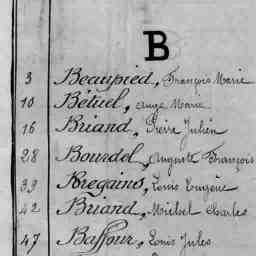 B
3 Beaupied, François Marie
10 Bétuel, Ange Marie
16 Briand, Pierre Julien
28 Bourdel, Auguste François
39 Louis Eugène
42 Briand, Michel Charles
47 Louis Jules